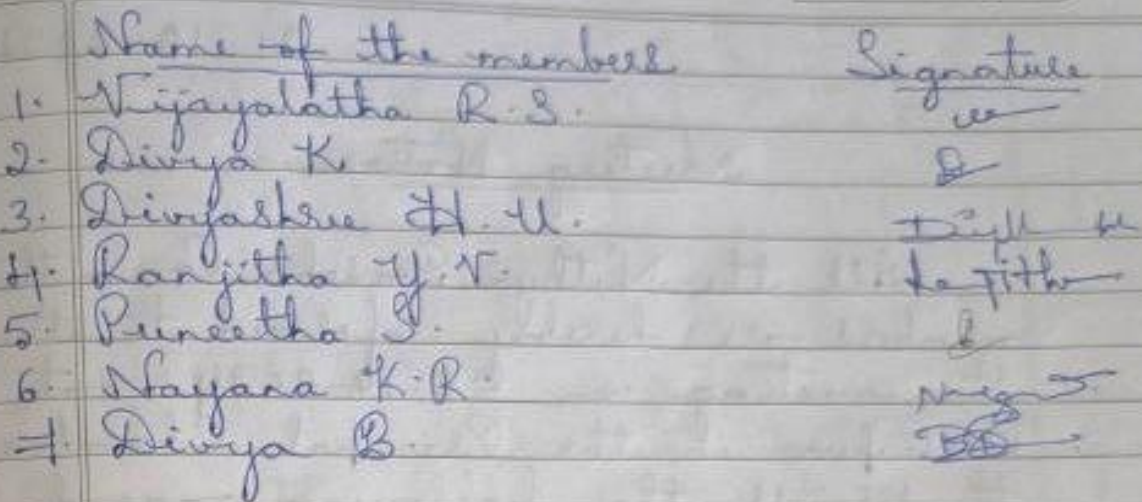 Name of the members Signature
1. Vijayalatha R.S.
2. Divya K
3. Divyashree H.U.
4. Ranjitha Y.V.
5. Puneetha S.
6. Nayana K.R.
7. Divya B.